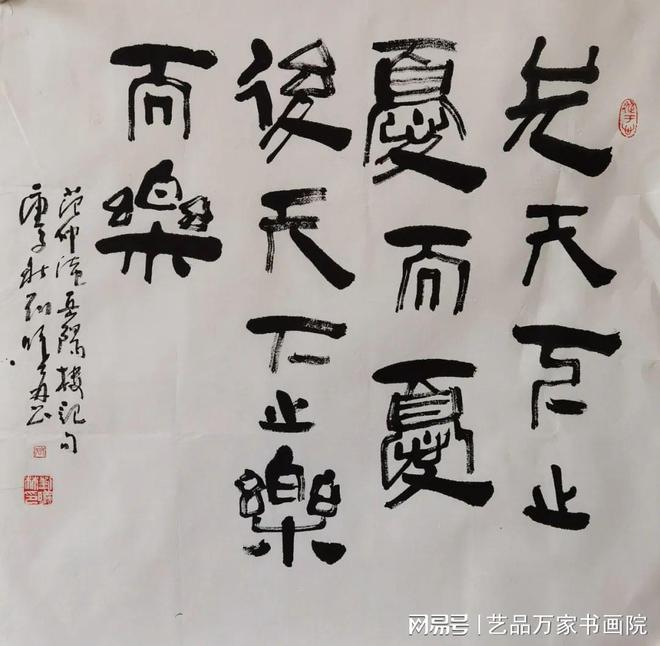 先天下之
憂而憂
後天下之樂
而樂
范仲淹岳陽楼记句
庚子秋
网易号 | 艺品万家书画院